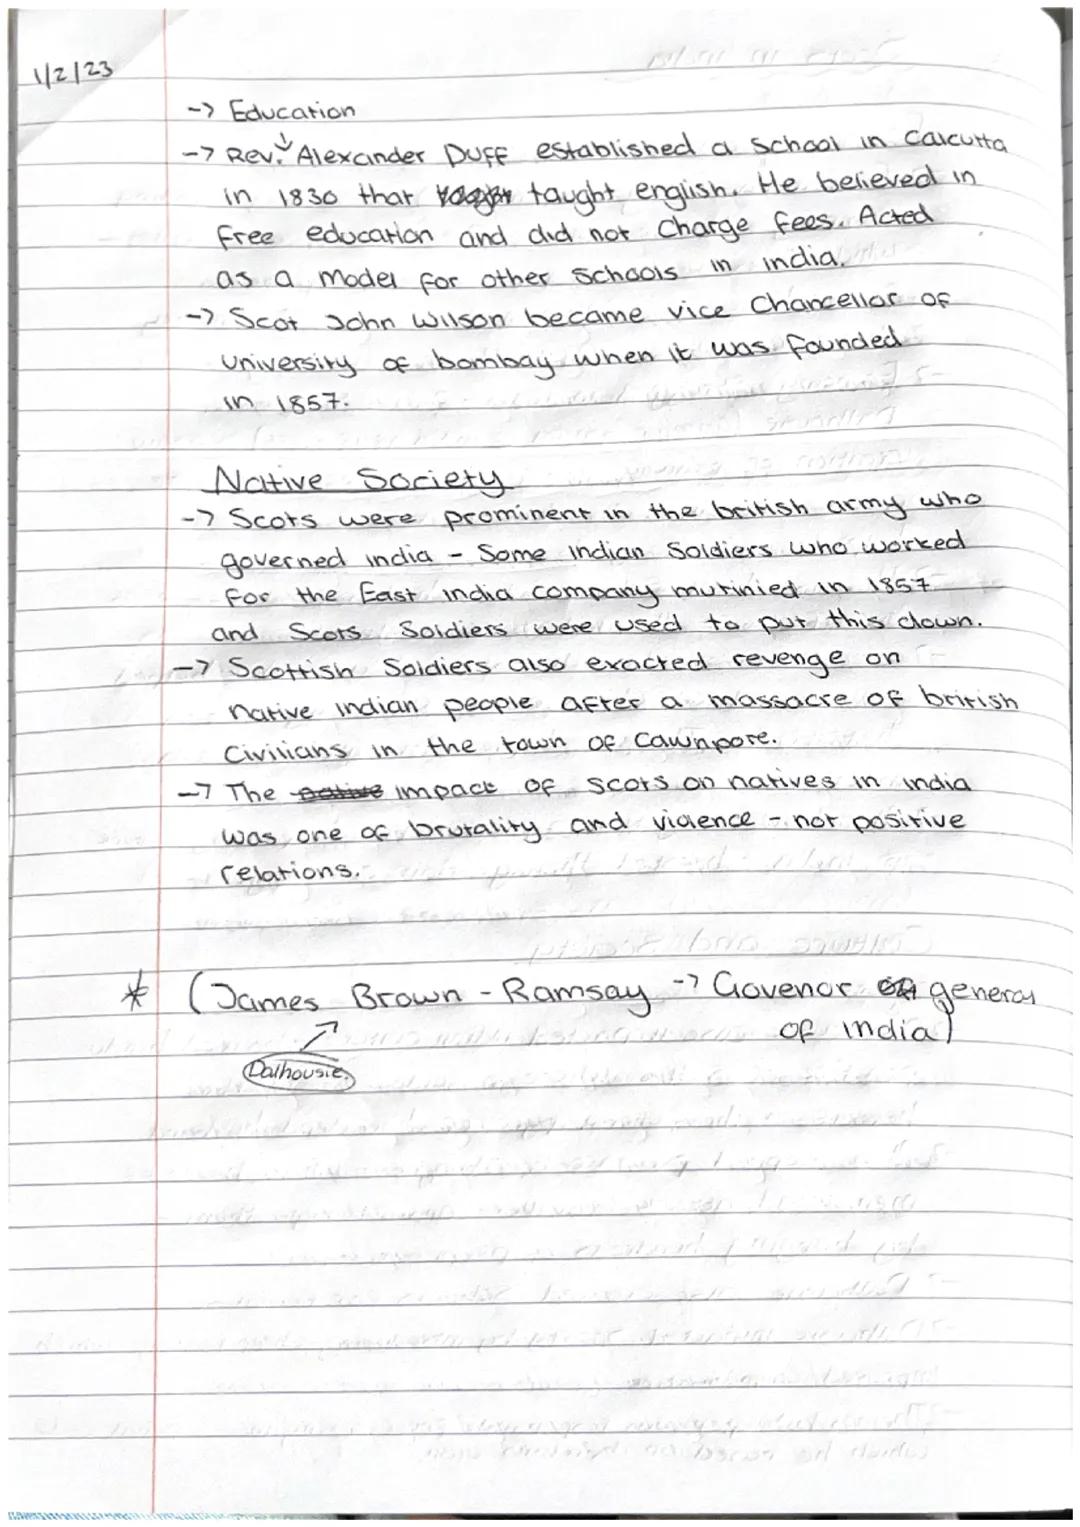 1/2/23
-> Education
-> Rev. Alexander Duff established a school in Calcutta
in 1830 that taught english. He believed in
free education and did not charge fees. Acted
as a model for other schools in india.
-> Scot John Wilson became vice Chancellor of
University of bombay when it was founded
in 1857.
Native Society
-> Scots were prominent in the british army who
governed india - Some indian Soldiers who worked
for the East india company mutinied in 1857
and Scots Soldiers were used to put this down.
-> Scottish Soldiers also exacted revenge on
native indian people after a massacre of british
Civilians in the town of Cawnpore.
-> The native impact of Scots on natives in india
was one of brutality and violence - not positive
relations.
* (James Brown - Ramsay -> Govenor general
of india)
Dalhousie